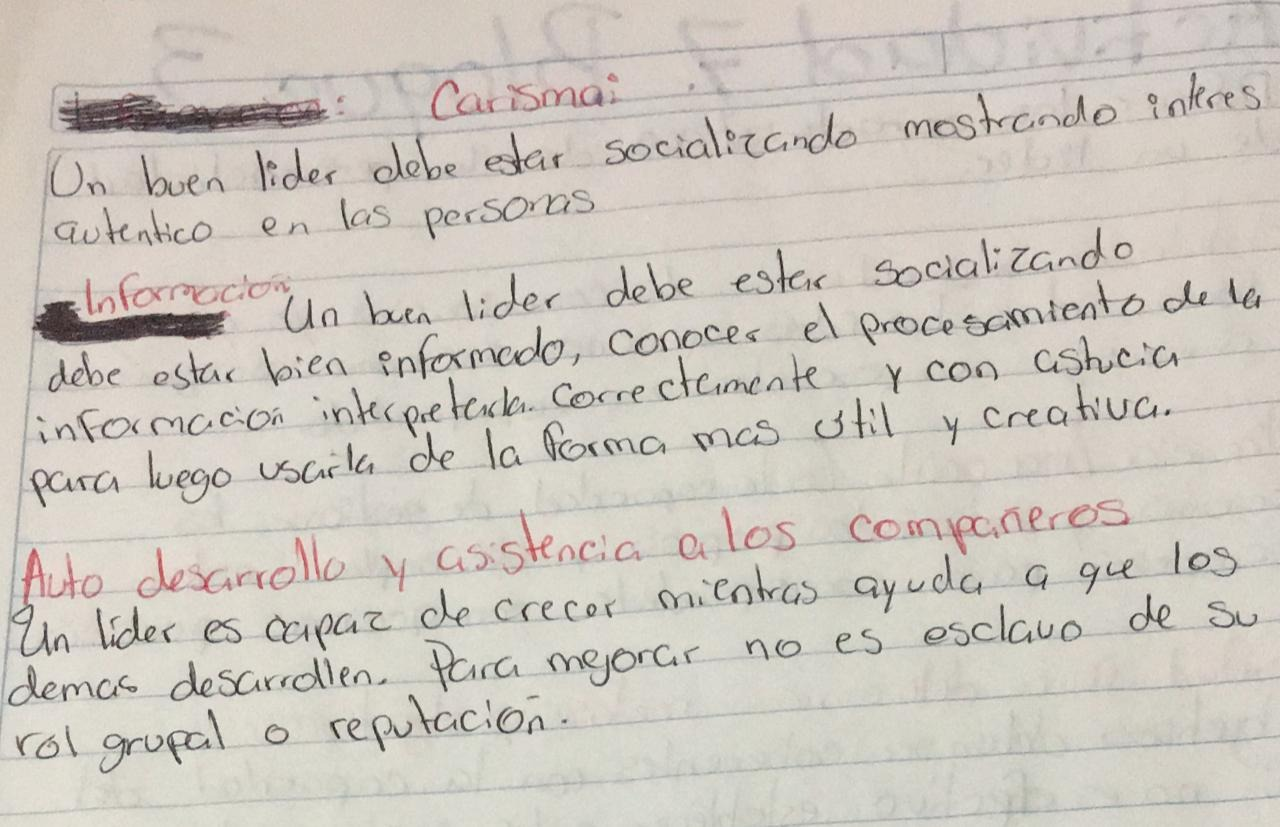 : Carisma:
Un buen lider debe estar socializando mostrando interes
autentico en las personas
Informacion
Un buen lider debe estar socializando
debe estar bien informado, conocer el procesamiento de la
información interpretarla. Correctamente y con astucia
para luego usarla de la forma mas util y creativa.
Auto desarrollo y asistencia a los compañeros
Un lider es capaz de crecer mientras ayuda a que los
demas desarrollen. Para mejorar no es esclavo de su
rol grupal o reputación.